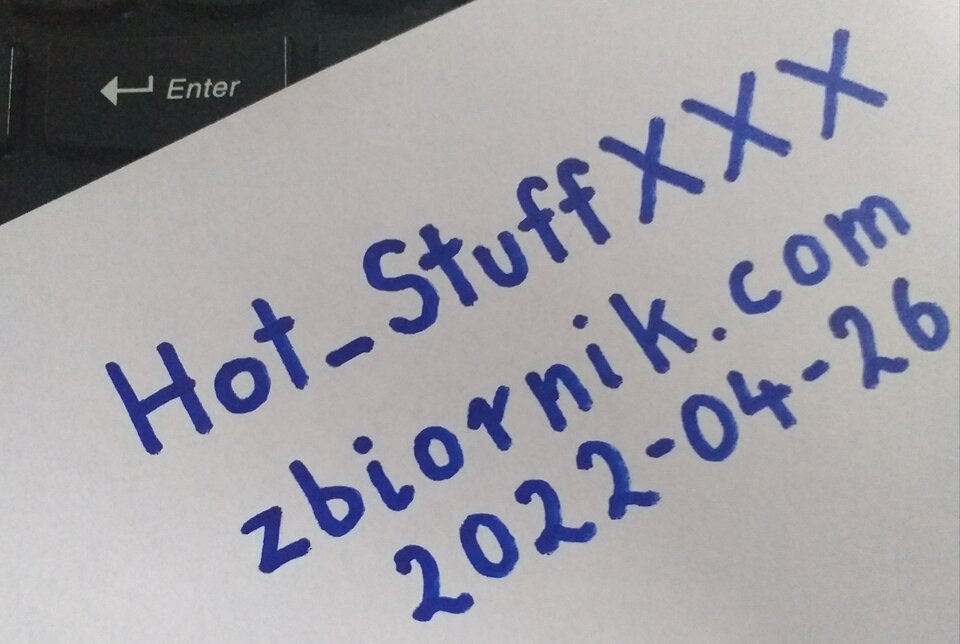 Enter
Hot_StuffXXX
zbiornik.com
2022-04-26